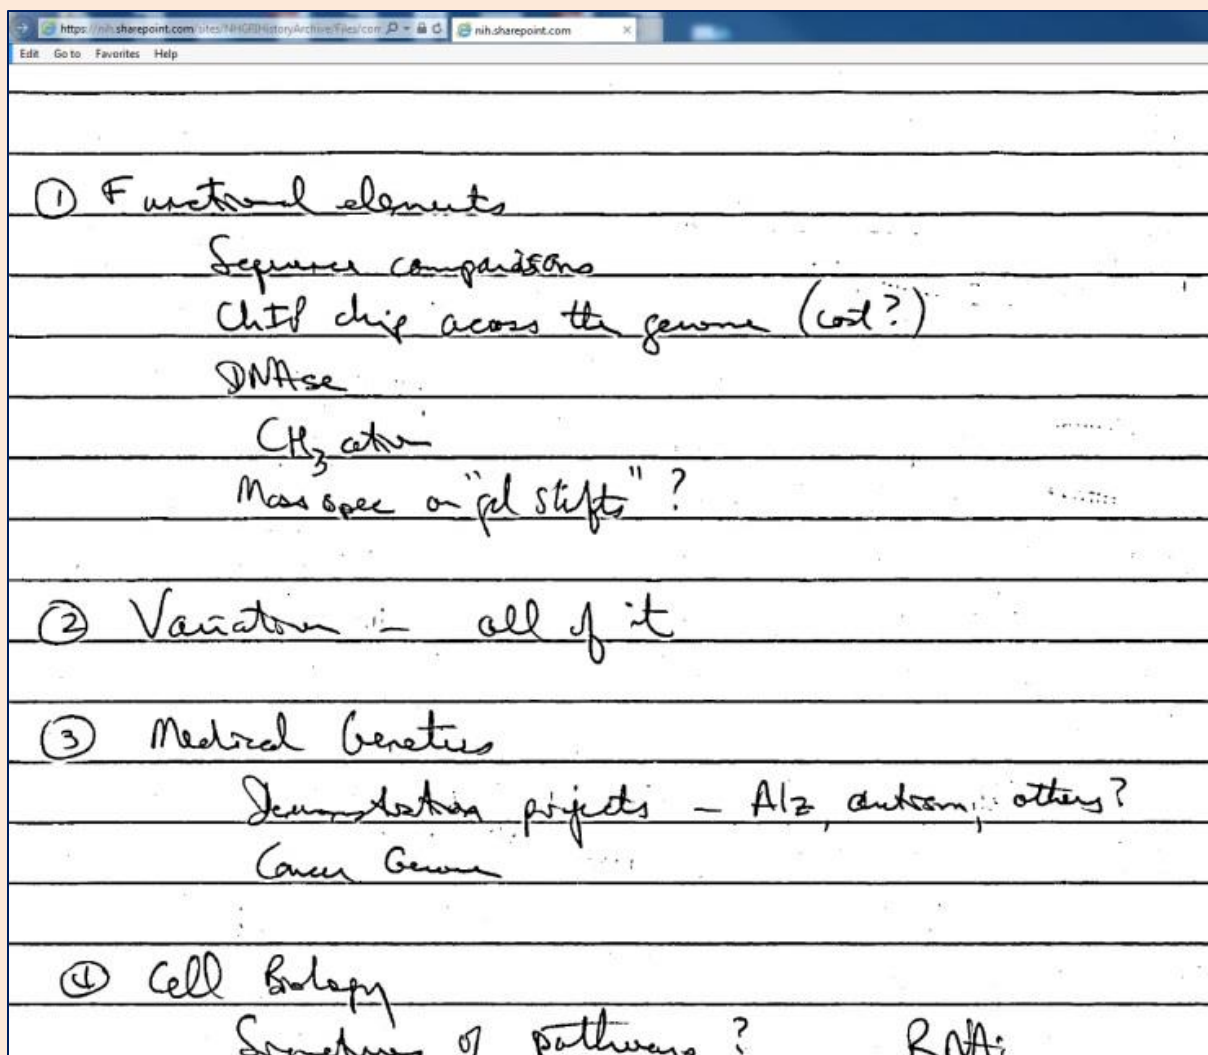 https://nih.sharepoint.com/sites/NHGRIHistoryArchive/Files/con
nih.sharepoint.com
Edit Go to Favorites Help
① Functional elements
Sequence comparisons
ChIP chip across the genome (cost?)
DNAse
CH3 ation
Mass spec on "gel shifts" ?
② Variation - all of it
③ Medical Genetics
Demonstration projects - Alz, autism, others?
Cancer Genome
④ Cell Biology
Signatures of pathways? RNAi